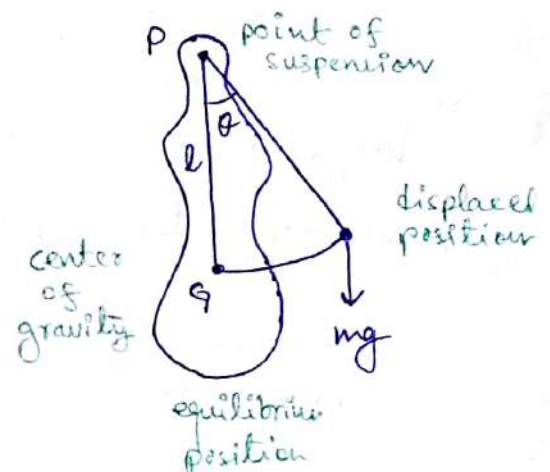 P
point of
suspension
θ
l
displaced
position
center
of
gravity
G
mg
equilibrium
position